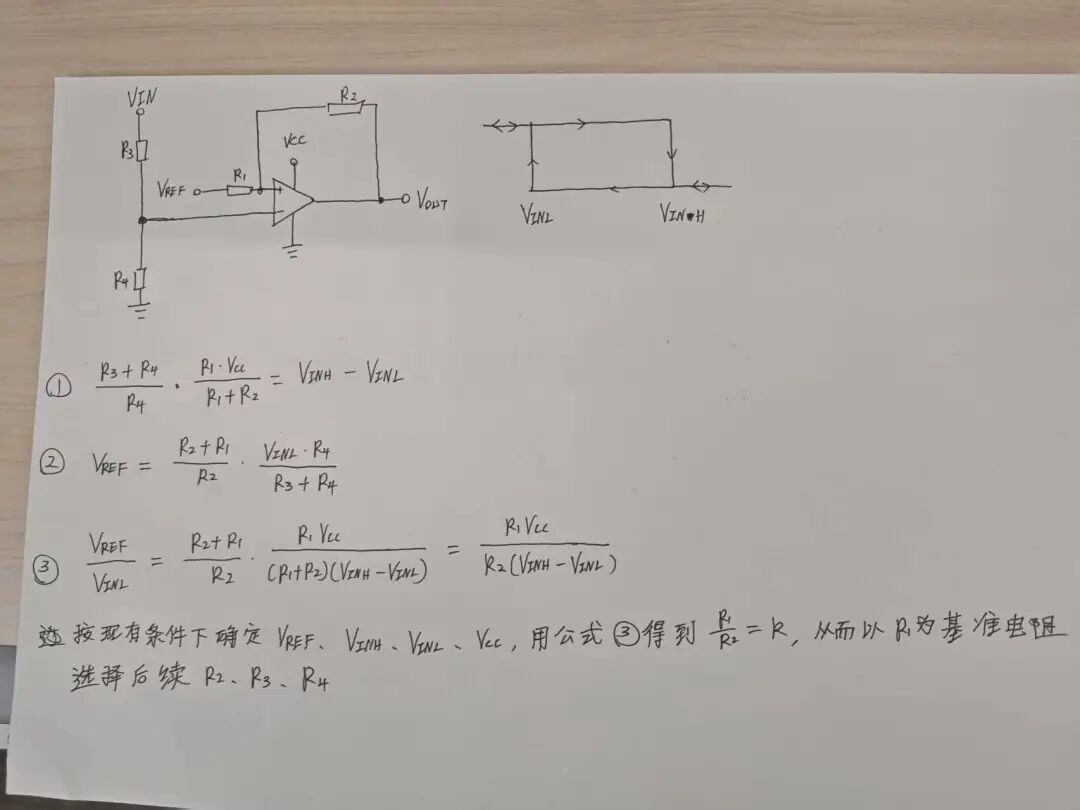 VIN
R2
R3
VCC
R1
VREF
+
-
VOUT
R4
VINL
VINH
① (R3 + R4)/R4 · (R1·Vcc)/(R1+R2) = VINH - VINL
② VREF = (R2+R1)/R2 · (VINL·R4)/(R3+R4)
③ VREF/VINL = (R2+R1)/R2 · (R1 Vcc)/((R1+R2)(VINH-VINL)) = (R1 Vcc)/(R2(VINH-VINL))
按现有条件下确定 VREF、VINH、VINL、Vcc，用公式③得到 R1/R2 = K，从而以 R1为基准电阻
选择后续 R2、R3、R4